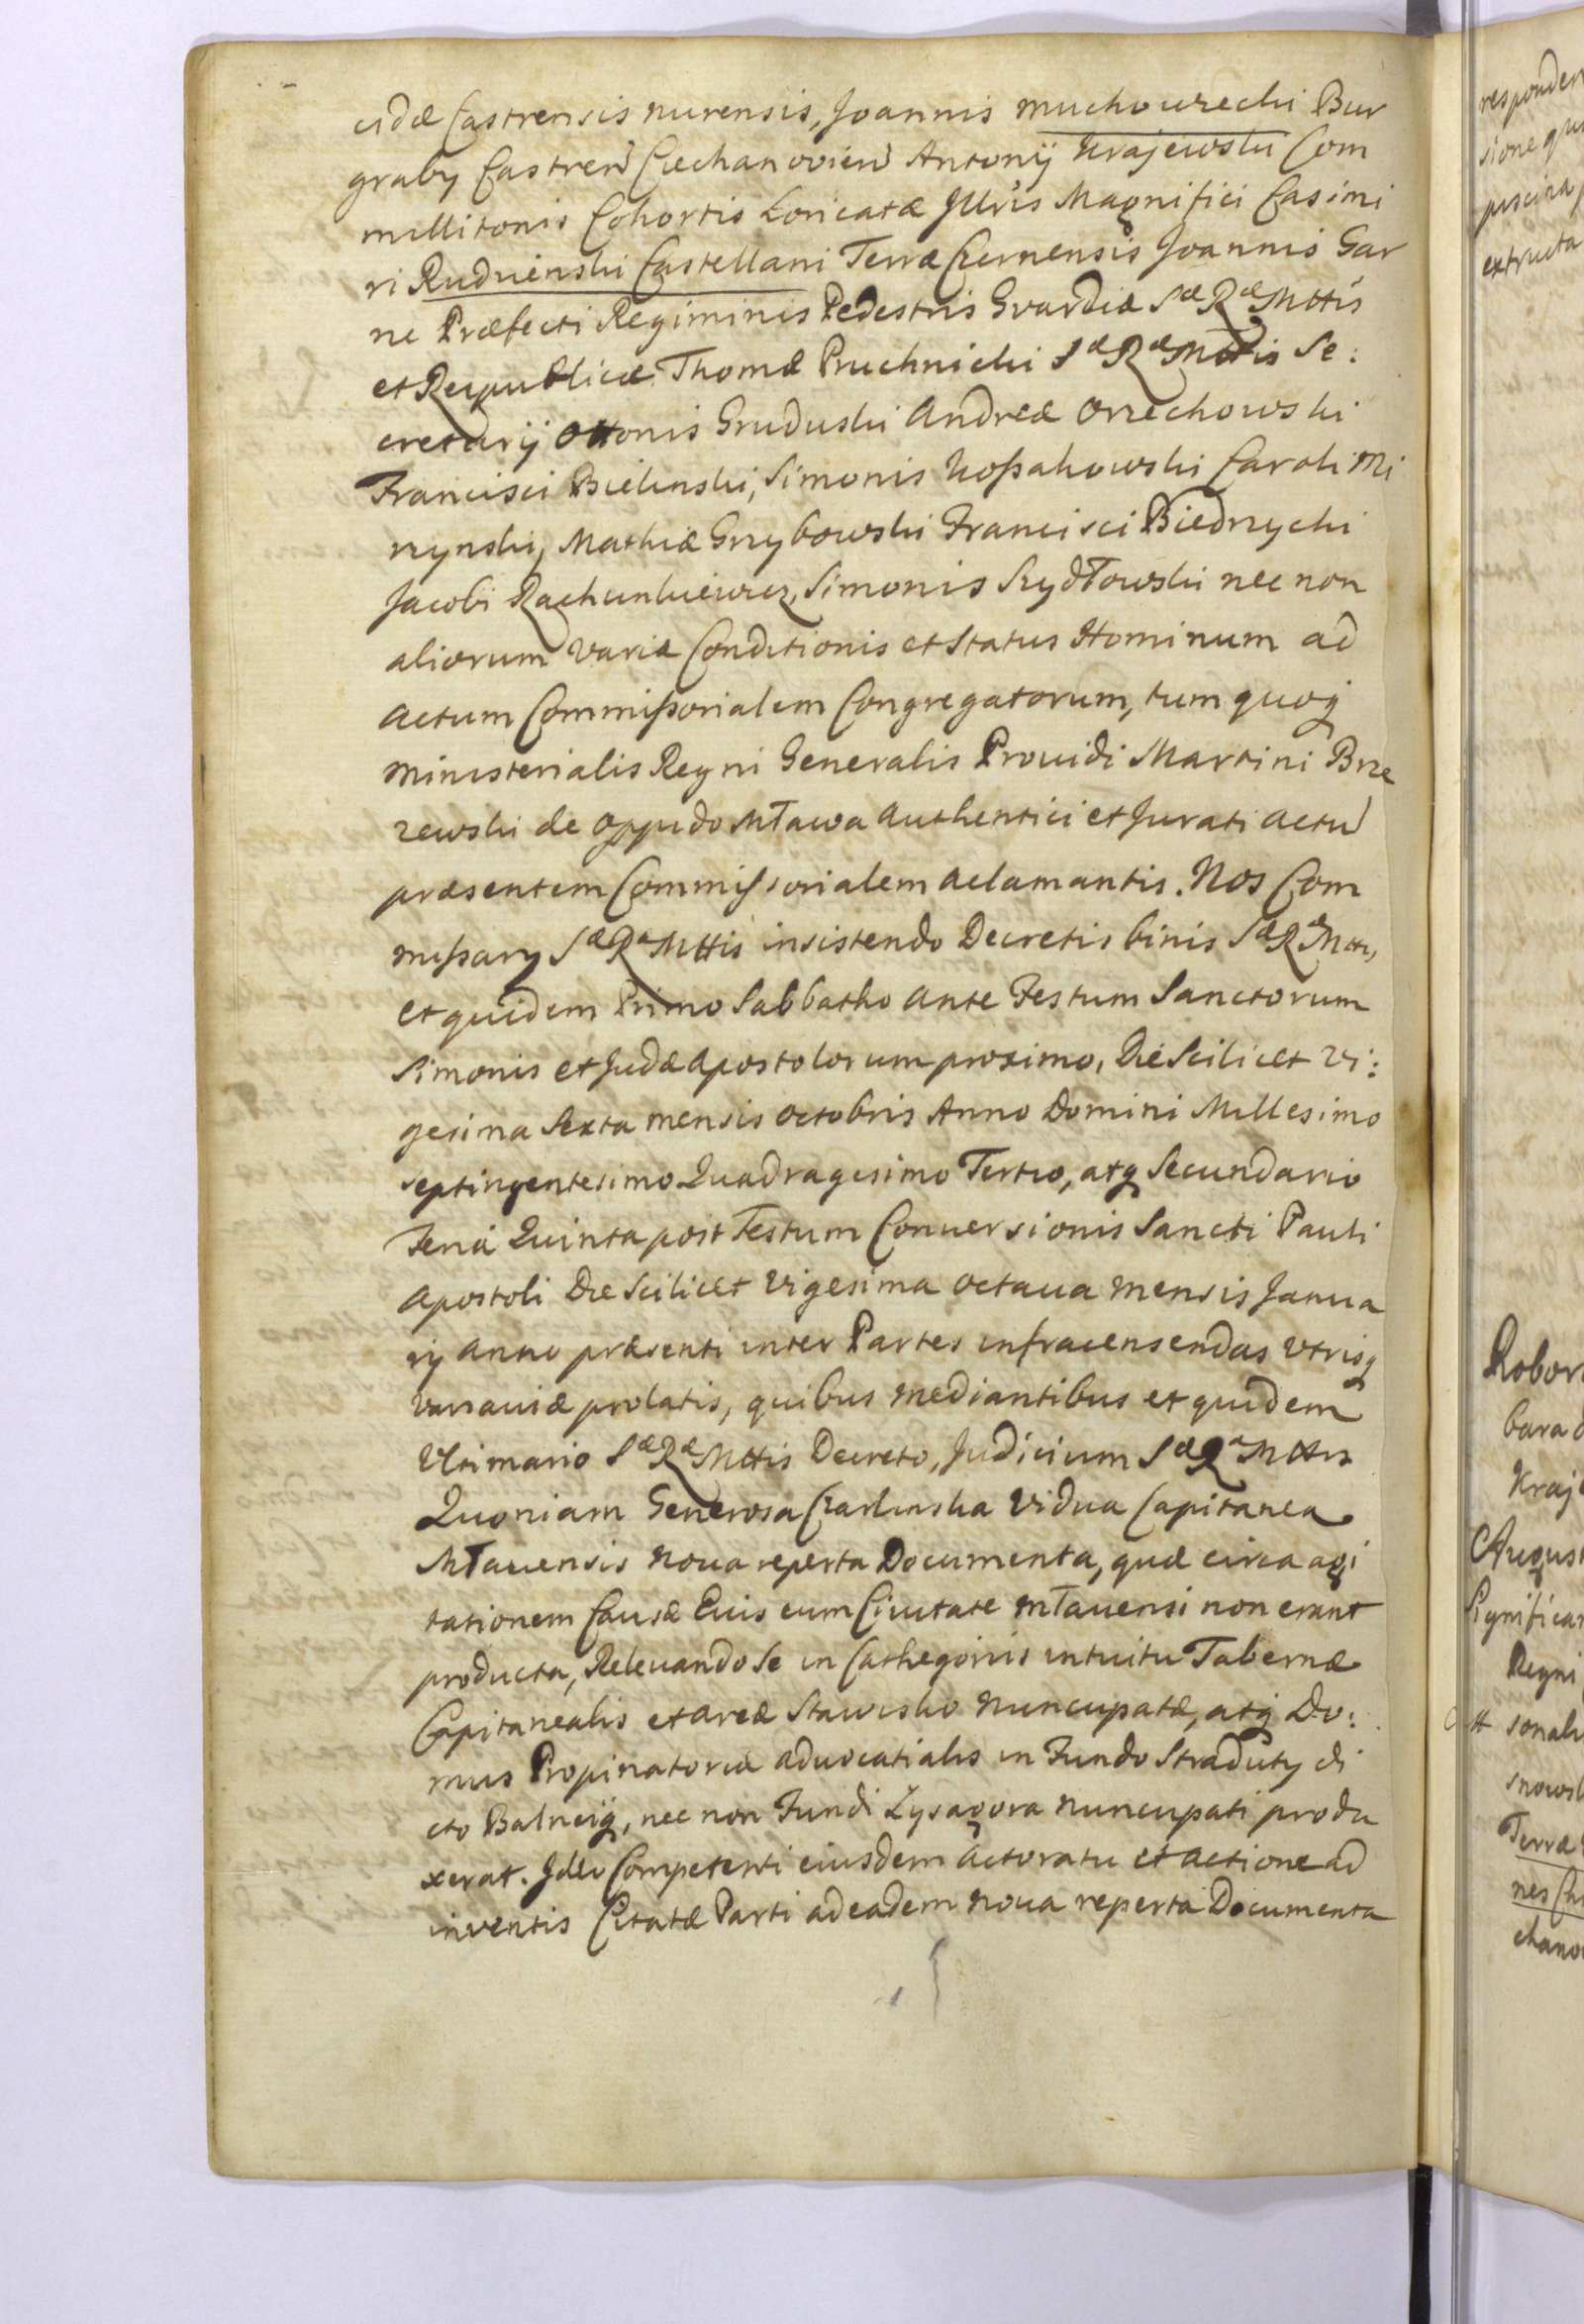 cidæ Castrensis nurensis, Joannis Muchowiecki Bur
graby Castren Ciechanovien Antonij Krajewski Com
militonis Cohortis Loricatæ Jllris Magnifici Casimi
ri Rudzienski Castellani Terræ Czernensis Joannis Gar
ne Præfecti Regiminis Pedestris Gvardiæ Sæ Ræ Mttis
et Reipublicæ Thomæ Pruchnicki Sæ Ræ Mttis Se:
cretarij Ottonis Gruduski Andreæ Orzechowski
Francisci Bielinski, Simonis Koßakowski Caroli Mi
rzynski, Mathiæ Grzybowski Francisci Biedrzycki
Jacobi Rachunkiewicz, Simonis Szydłowski nec non
aliorum Variæ Conditionis et Status Hominum ad
Actum Commißorialem Congregatorum, tum quoq
Ministerialis Regni Generalis Prouidi Martini Brze
zewski de Oppido Mława Authentici et Jurati Actu
præsentem Commissorialem Aclamantis. Nos Com
mißary Sæ Ræ Mttis insistendo Decretis binis Sæ Ræ Mttis,
et quidem Primo Sabbatho Ante Festum Sanctorum
Simonis et Judæ Apostolorum proximo, Die Scilicet Vi:
gesima Sexta mensis Octobris Anno Domini Millesimo
septingentesimo Quadragesimo Tertio, atq Secundario
Feria Quinta post Festum Conuersionis Sancti Pauli
Apostoli Die Scilicet Vigesima Octaua Mensis Janua
rij Anno præsenti inter Partes infracensendas Vtrisq
Varsauiæ prolatis, quibus mediantibus et quidem
Vltimario Sæ Ræ Mttis Decreto, Judicium Sæ Ræ Mttis
Quoniam Generosa Czarlinska Vidua Capitanea
Młauensis Noua reperta Documenta, quæ circa agi
tationem Causæ Eius cum Ciuitate Młauensi non erant
producta, Releuando Se in Cathegoriis intuitu Tabernæ
Capitanealis et areæ Stawisko Nuncupatæ, atq Do:
mus Propinatoriæ aduocatialis in Fundo Straduty di
cto Balneiq, nec non Fundi Łysagora nuncupati produ
xerat. Jdeo Competenti eiusdem Actoratu et Actione ad
inventis Citatæ Parti ad eadem Noua reperta Documenta